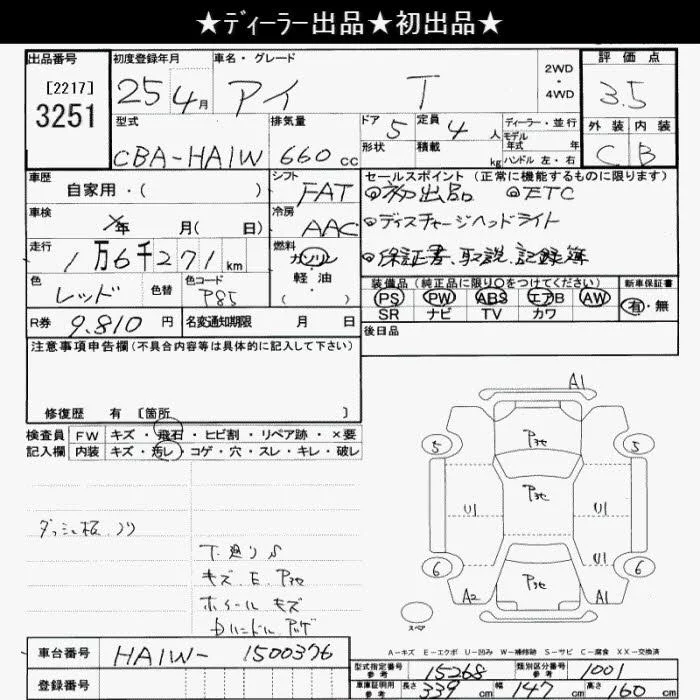 ★ディーラー出品★初出品★
出品番号 初度登録年月 車名・グレード 2WD・4WD 評価点
[2217] 3251 25年 4月 アイ T 3.5
型式 排気量 ドア 5 定員 4人 ディーラー・並行 外装 内装
CBA-HA1W 660cc 形状 積載 kg モデル年式 年 C B
ハンドル 左・右
車歴 シフト セールスポイント (正常に機能するものに限ります)
自家用・( ) FAT ◎初出品 ◎ETC
車検 年 月( 日) 冷房 AAC ◎ディスチャージヘッドライト
走行 1万6千271km 燃料 ガソリン 軽油 ( ) ◎保証書、取説、記録簿
色 レッド 色替 色コード P85
装備品 (純正品に限り○をつけてください) 新車保証書
PS PW ABS エアB AW 有・無
SR ナビ TV カワ
R券 9.810円 名変通知期限 月 日 後日品
注意事項申告欄(不具合内容等は具体的に記入して下さい)
修復歴 有 [箇所 ]
検査員 FW キズ・飛石・ヒビ割・リペア跡・×要
記入欄 内装 キズ・汚レ・コゲ・穴・スレ・キレ・破レ
A1
P3セ
5 5
P3セ
U1 U1
U1
6 6
A2 P3セ A1
スペア
ダッシュ板、ノリ
下廻りS
キズ E P3セ
ホイール キズ
ハンドル ハゲ
A-キズ E-エクボ U-凹み W-補修跡 S-サビ C-腐食 XX-交換済
車台番号 HA1W-1500376
型式指定番号 参考 15268 類別区分番号 参考 1001
登録番号
車庫証明用 参考 長さ 339cm 幅 147cm 高さ 160cm